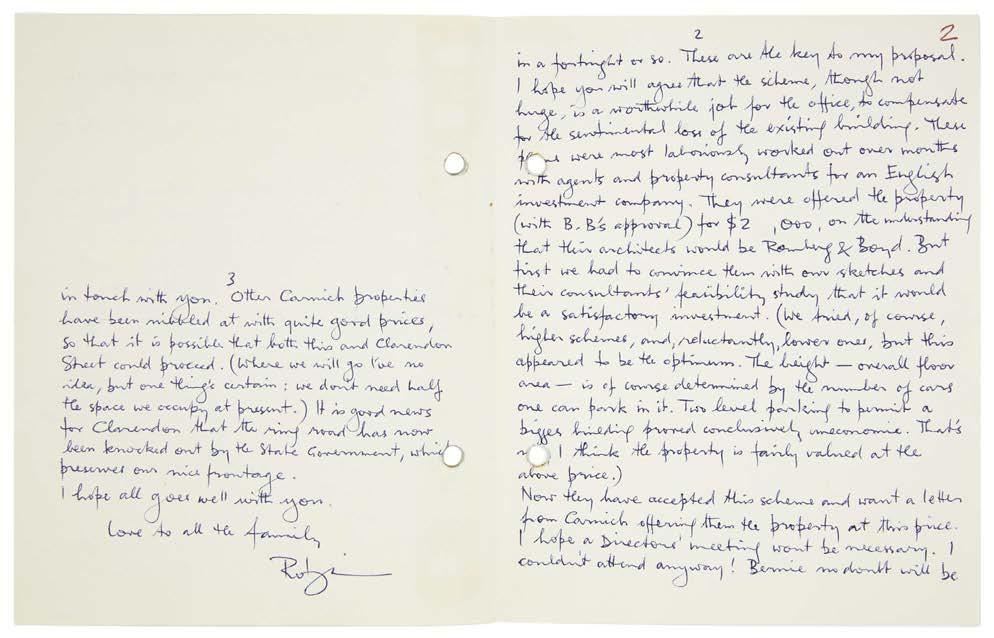 2
2
in a fortnight or so. These are the key to my proposal.
I hope you will agree that the scheme, though not
huge, is a worthwhile job for the office, to compensate
for the sentimental loss of the existing building. These
were most laboriously worked out over months
with agents and property consultants for an English
investment company. They were offered the property
(with B.B's approval) for $2 ,000, on the understanding
that their architects would be Romberg & Boyd. But
first we had to convince them with our sketches and
their consultants' feasibility study that it would
be a satisfactory investment. (We tried, of course,
higher schemes, and, reluctantly, lower ones, but this
appeared to be the optimum. The height — overall floor
area — is of course determined by the number of cars
one can park in it. Two level parking to permit a
bigger building proved conclusively uneconomic. That's
I think the property is fairly valued at the
above price.)
Now they have accepted this scheme and want a letter
from Carnich offering them the property at this price.
I hope a Directors' meeting won't be necessary. I
couldn't attend anyway! Bernie no doubt will be
3
in touch with you. Other Carnich properties
have been nibbled at with quite good prices,
so that it is possible that both this and Clarendon
Street could proceed. (Where we will go I've no
idea, but one thing's certain: we don't need half
the space we occupy at present.) It is good news
for Clarendon that the ring road has now
been knocked out by the State Government, which
preserves our nice frontage.
I hope all goes well with you.
Love to all the family
Robin